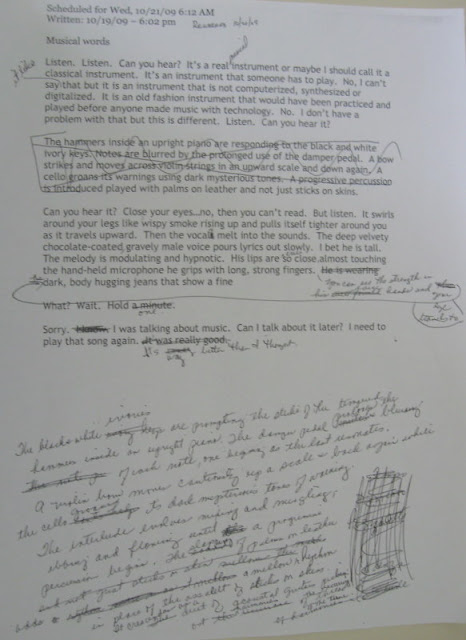 Scheduled for Wed, 10/21/09 6:12 AM
Written: 10/19/09 – 6:02 pm
Musical words
Listen. Listen. Can you hear? It's a real instrument or maybe I should call it a
classical instrument. It's an instrument that someone has to play. No, I can't
say that but it is an instrument that is not computerized, synthesized or
digitalized. It is an old fashion instrument that would have been practiced and
played before anyone made music with technology. No. I don't have a
problem with that but this is different. Listen. Can you hear it?
The hammers inside an upright piano are responding to the black and white
ivory keys. Notes are blurred by the prolonged use of the damper pedal. A bow
strikes and moves across violin strings in an upward scale and down again. A
cello groans its warnings using dark mysterious tones. A progressive percussion
is introduced played with palms on leather and not just sticks on skins.
Can you hear it? Close your eyes...no, then you can't read. But listen. It swirls
around your legs like wispy smoke rising up and pulls itself tighter around you
as it travels upward. Then the vocals melt into the sounds. The deep velvety
chocolate-coated gravely male voice pours lyrics out slowly. I bet he is tall.
The melody is modulating and hypnotic. His lips are so close almost touching
the hand-held microphone he grips with long, strong fingers. He is wearing
dark, body hugging jeans that show a fine
you can see the strength in
his hands and
What? Wait. Hold a minute.
one
Sorry. I was talking about music. Can I talk about it later? I need to
play that song again. It was really good.
It's better than I thought.
ivories
The black & white keys are prompting the sticks of the
hammers inside an upright piano. The damper pedal blurring
of each note, one begins as the last resonates.
A violin bow moves cautiously up a scale & back again while
the cello groans its dark mysterious tones of warning.
The interlude endures mixing and mingling,
ebbing and flowing until a progressive
percussion begins. The of palms on leather
and not just sticks on skin
adds a a mellow rhythm
in place of the of sticks on skins.